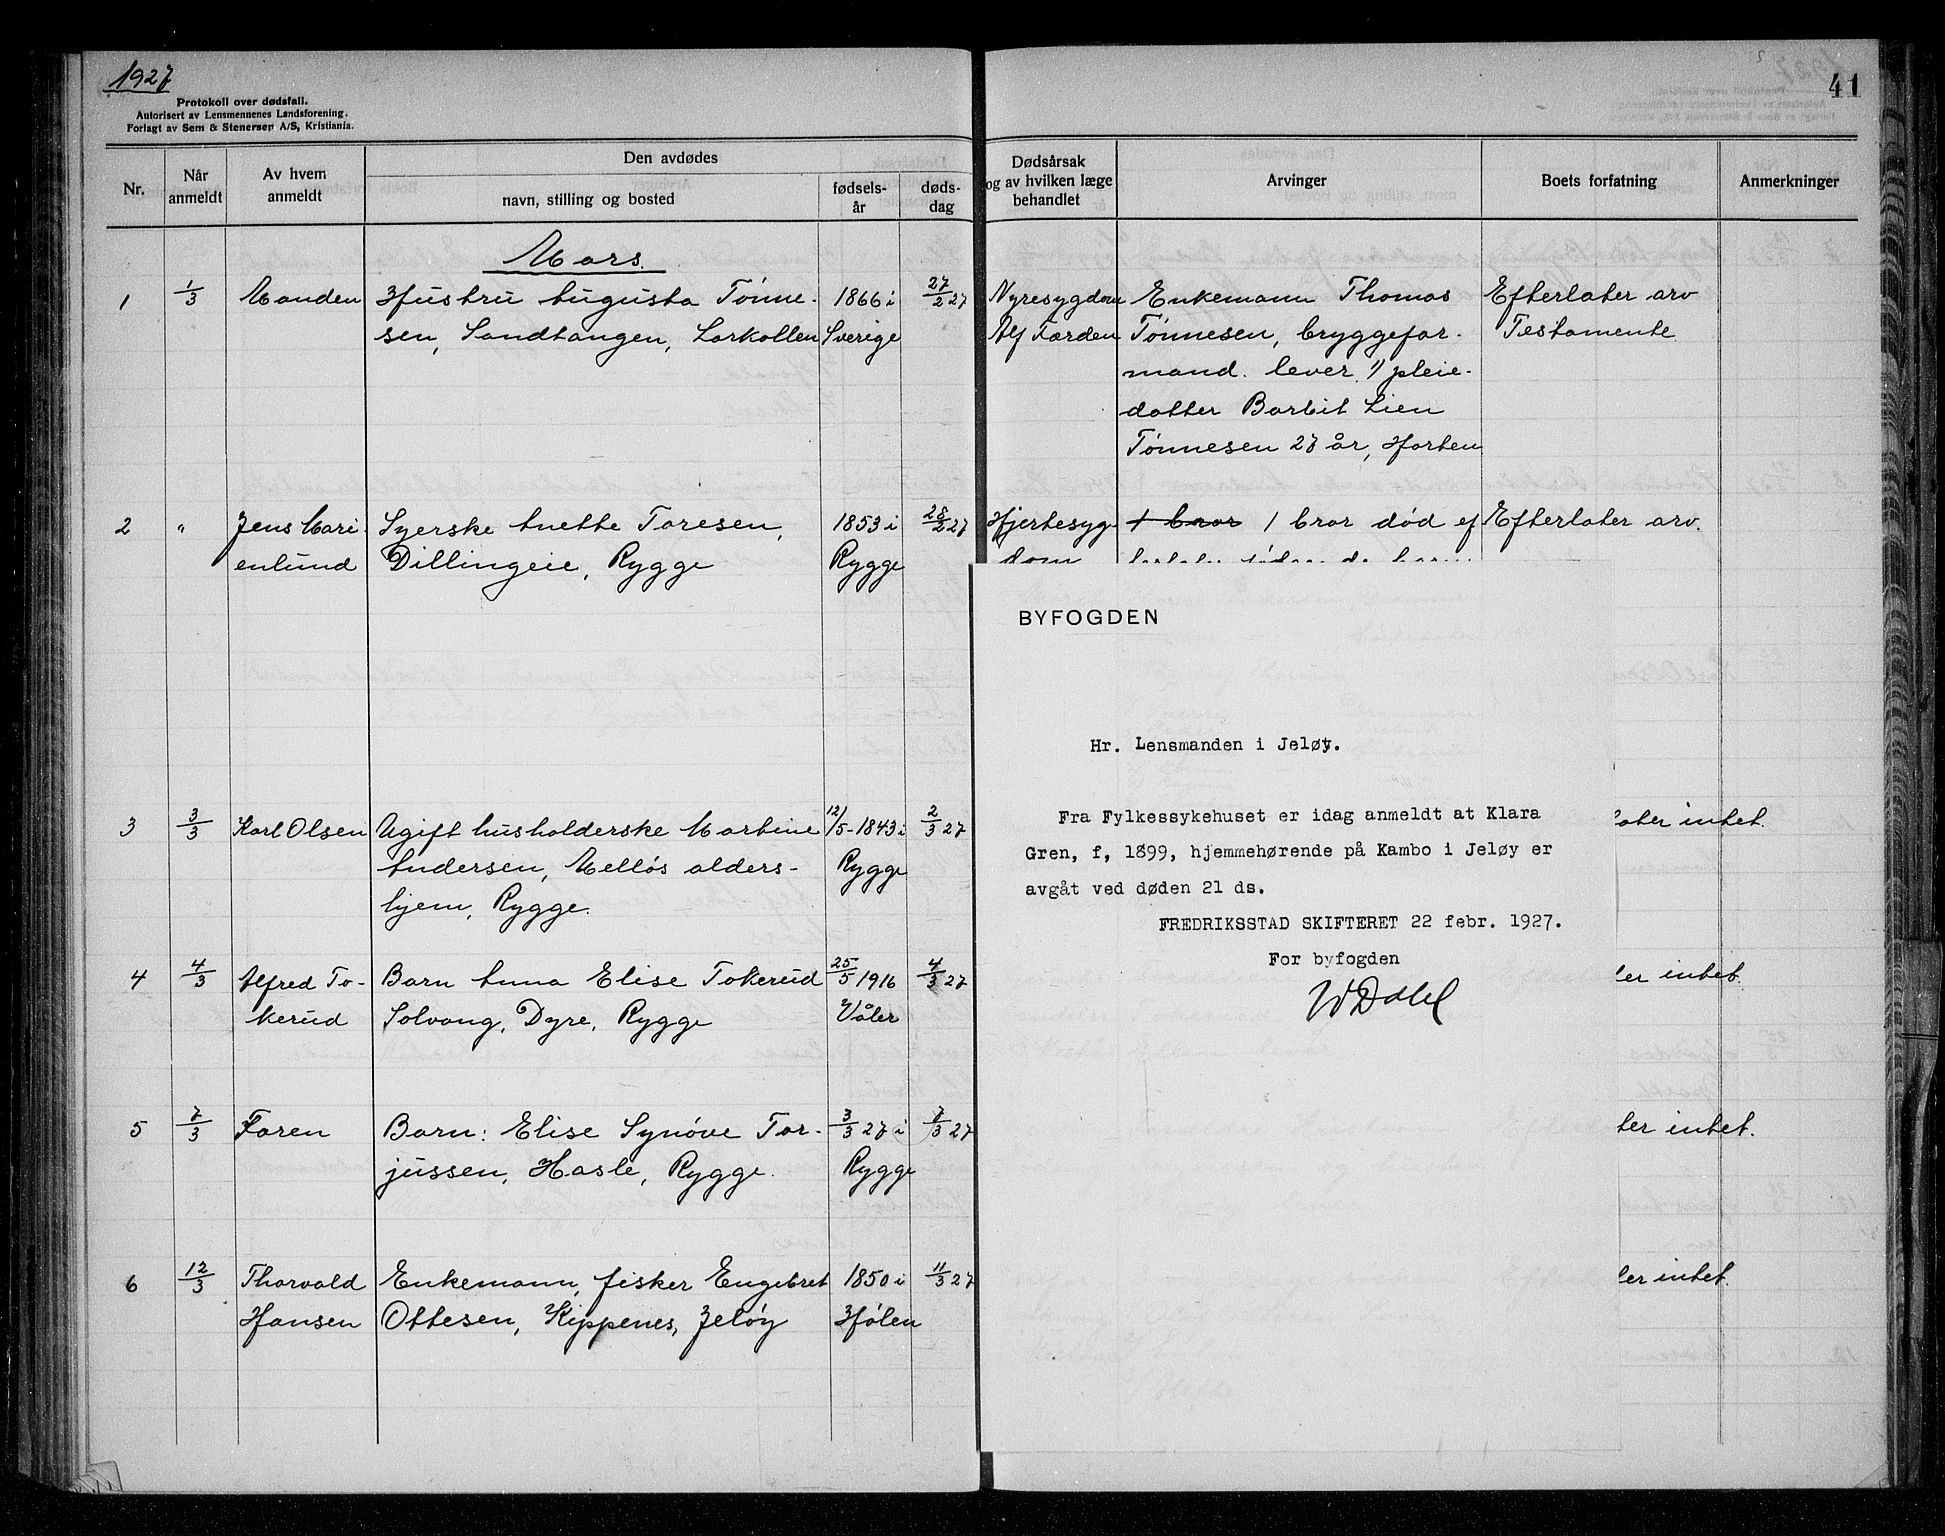 1927
41
Protokoll over dødsfall.
Autorisert av Lensmennenes Landsforening.
Forlagt av Sem & Stenersen A/S, Kristiania.
Nr.
Når anmeldt
Av hvem anmeldt
Den avdødes
navn, stilling og bosted
fødsels-år
døds-dag
Dødsårsak og av hvilken læge behandlet
Arvinger
Boets forfatning
Anmerkninger
Mars.
1 1/3 Manden Hustru Augusta Tönne- 1866 i 27/2 27 Nyresygdom Enkemann Thomas Efterlater arv
sen, Sandtangen, Larkollen Sverige Alf Færden Tönnesen, bryggefor- Testamente
mand. lever. 1) pleie-
datter Borbit Lien
Tönnesen 27 år, Horten
2 " Jens Mari- Syerske Anette Toresen, 1853 i 28/2 27 Hjertesyg- 1 bror 1 bror död ef Efterlater arv.
enlund Dillingeie, Rygge Rygge dom
3 3/3 Karl Olsen Ugift husholderske Martine 12/5-1843 i 2/3 27 later intet.
Andersen, Mellös alders- Rygge
hjem, Rygge.
4 4/3 Alfred To- Barn Anna Elise Tokerud 25/5 1916 4/3 27 ler intet.
kerud Solvang, Dyre, Rygge Våler
5 7/3 Faren Barn: Elise Synöve Tor- 3/3 27 i 7/3 27 ter intet.
jussen, Hasle, Rygge. Rygge
6 12/3 Thorvald Enkemann, fisker Engebret 1850 i 11/3 27 ler intet.
Hansen Ottesen, Kippenes, Jelöy Hölen
BYFOGDEN
Hr. Lensmanden i Jeløy.
Fra Fylkessykehuset er idag anmeldt at Klara
Gren, f, 1899, hjemmehørende på Kambo i Jeløy er
avgåt ved døden 21 ds.
FREDRIKSSTAD SKIFTERET 22 febr. 1927.
For byfogden